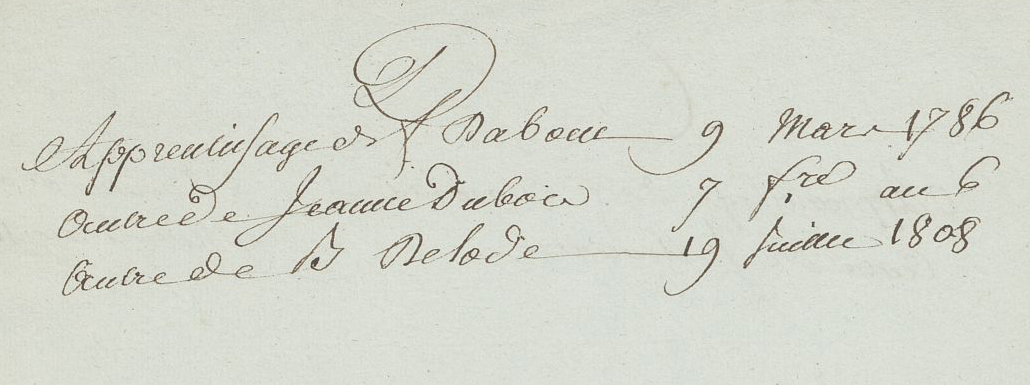 D
Apprentissage de f Daboui 9 Mars 1786
autre de Jeanne Dubois 7 fre an 6
autre de B Delode 19 1808